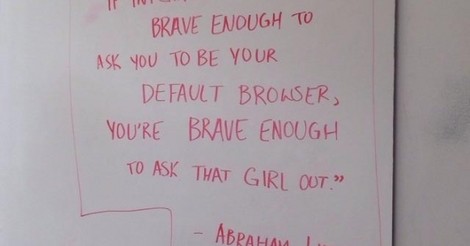 IF
BRAVE ENOUGH TO
ASK YOU TO BE YOUR
DEFAULT BROWSER,
YOU'RE BRAVE ENOUGH
TO ASK THAT GIRL OUT."
- ABRAHAM